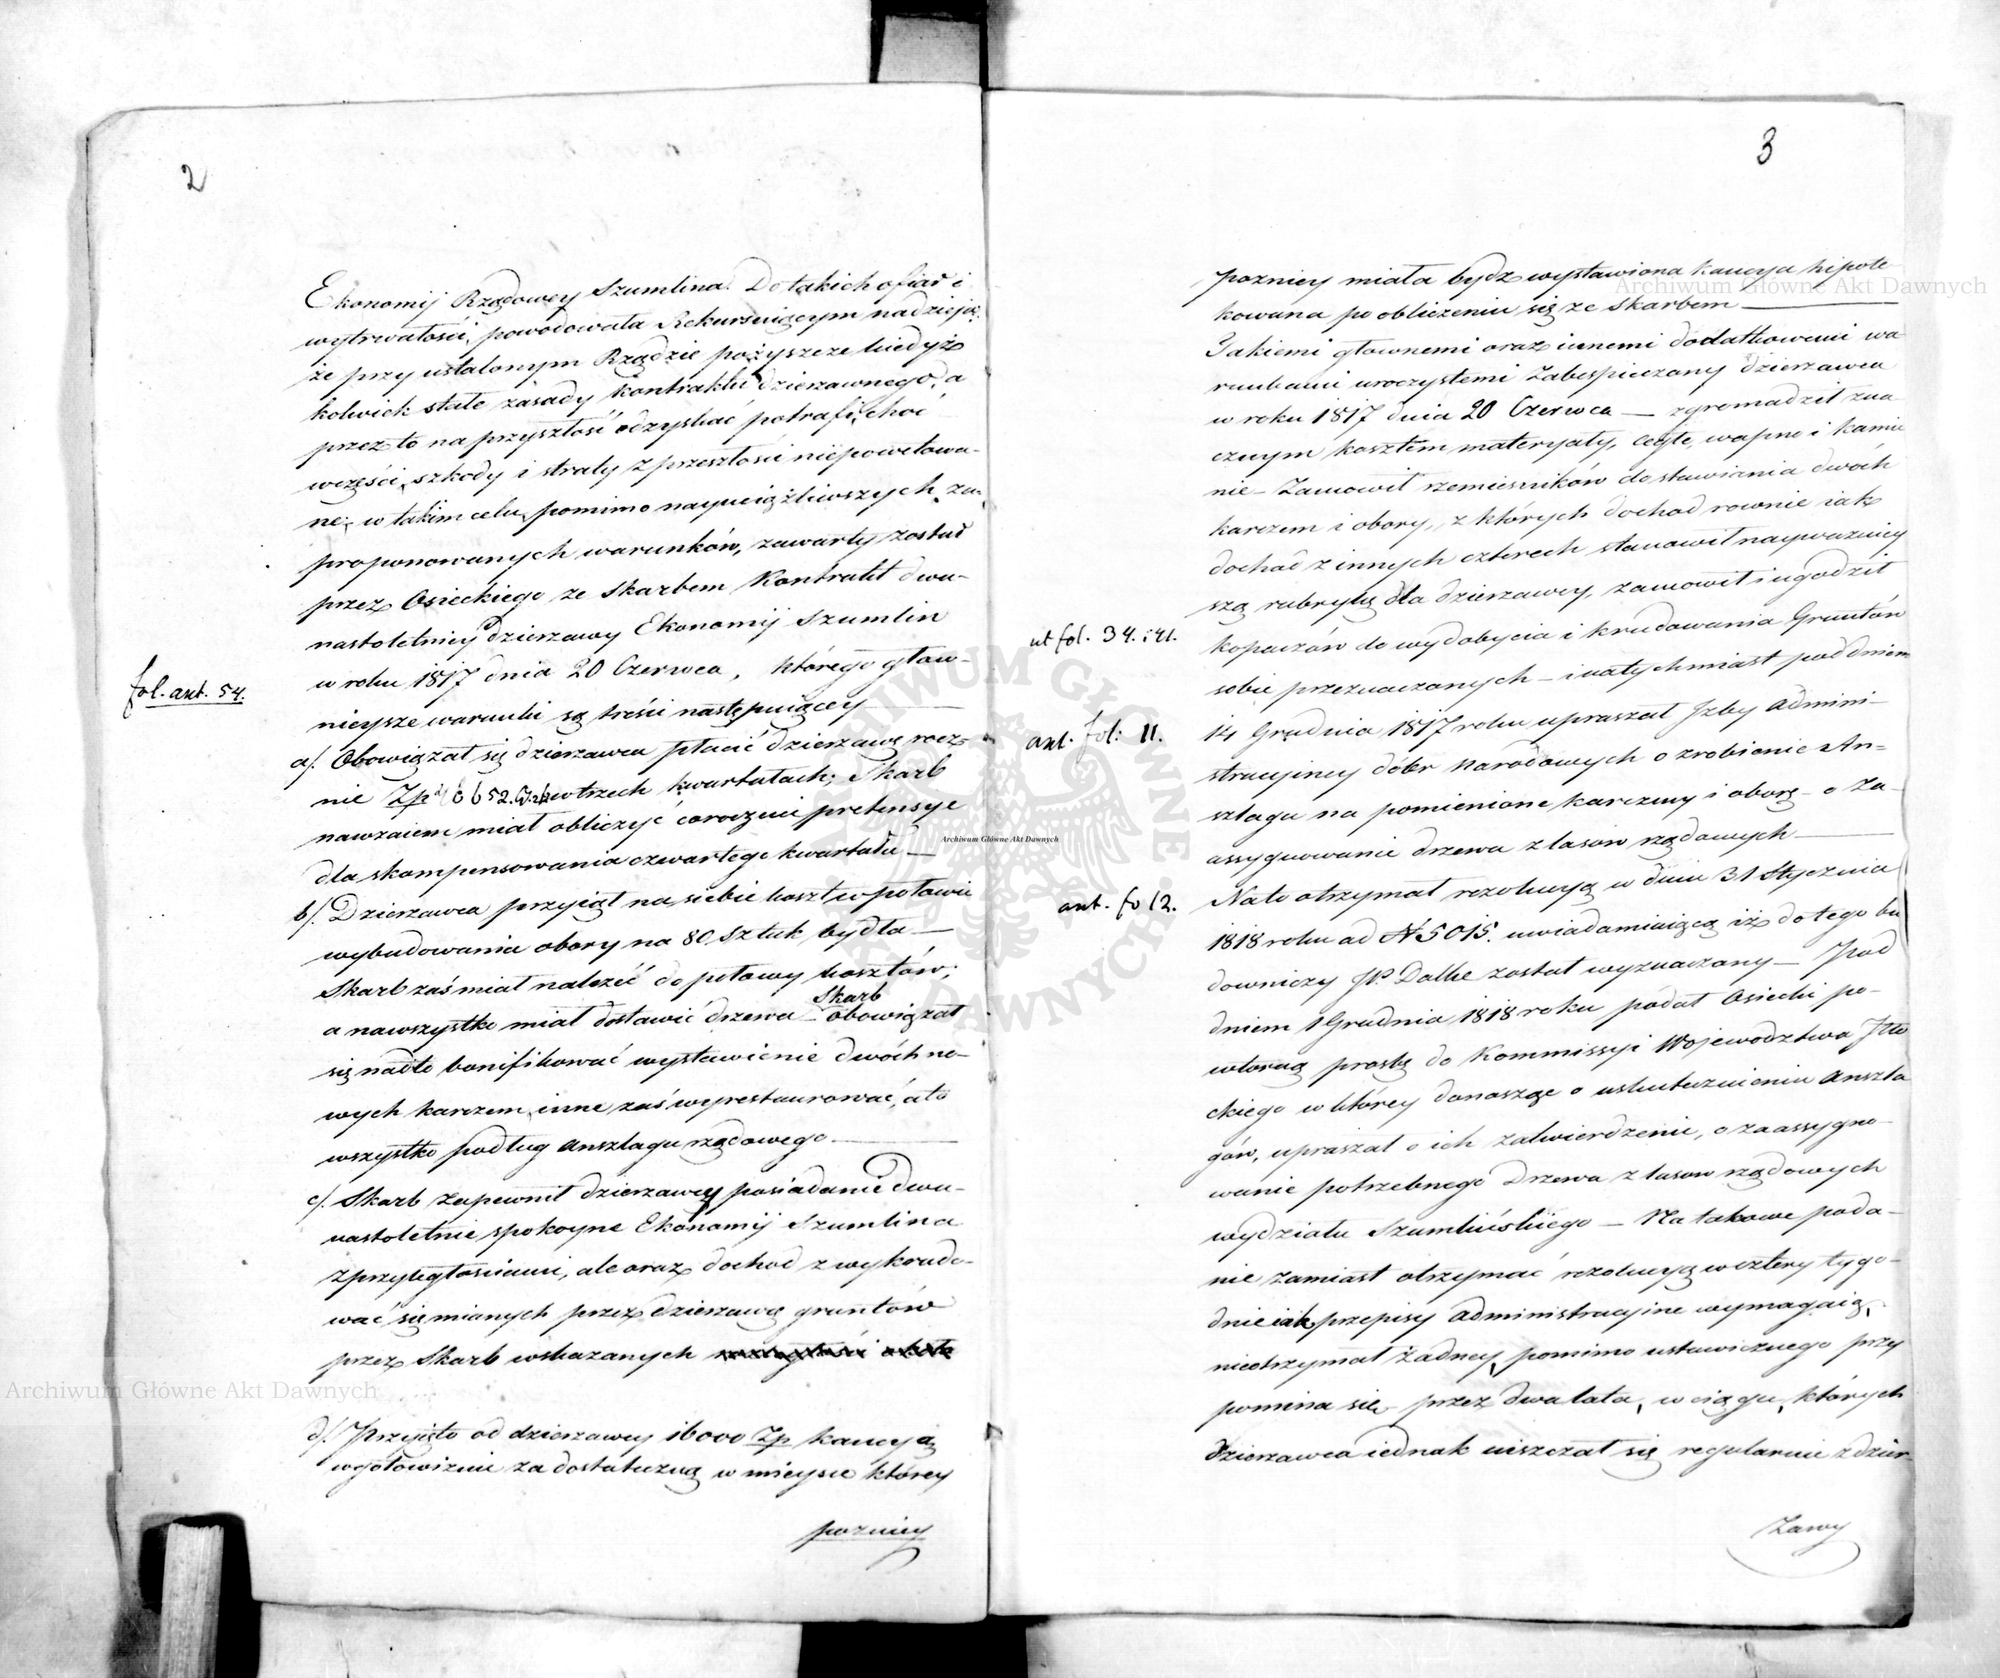 2
Ekonomij Rządowey Szumlina. Do takich ofiar i
wytrwałości, powodowała Rekurruiącym nadzieja,
że przy ustalonym Rządzie pozyszcze kiedyż
kolwiek stałe zasady kontraktu dzierzawnego, a
przez to na przyszłość odzyskać potrafi, choć
wczęści, szkody i straty z przeszłości niepowetowa-
ne, w takim celu, pomimo nayuciążliwszych za
proponowanych warunków, zawarty został
przez Osieckiego ze Skarbem Kontrakt dwu-
nastoletniey dzierzawy Ekonomij Szumlin
fol. ant. 54.
w roku 1817 dnia 20 Czerwca, którego głow-
nieysze warunki są treści następuiącey
a/. Obowiązał się dzierzawca płacić dzierzawę rocz-
nie Zp 6652. w trzech kwartałach; Skarb
nawzaiem miał obliczyć corocznie pretensye
dla skompensowania czwartego kwartału —
b/. Dzierzawca przyiął na siebie koszt w połowie
wybudowania obory na 80 sztuk bydła —
Skarb zaś miał należéć do połowy kosztów;
a nawszystko miał dostawić drzewa — Skarb obowiązał
się nadto bonifikować wystawienie dwóch no-
wych karczem, inne zaś wyrestaurować, a to
wszystko podług anszlagu rządowego —
c/. Skarb zapewnił dzierzawcy posiadanie dwu-
nastoletnie spokoyne Ekonomij Szumlina
z przyległościami, ale oraz dochod z wykrudo-
wać się mianych przez dzierzawcę gruntów
przez Skarb wskazanych
d/. Przyięto od dzierzawcy 16000 Zp kaucyą
wgotowiznie za dostateczną w mieysce którey
pozniey
3
pozniey miała bydz wystawiona kaucya hipote
kowana po obliczeniu się ze Skarbem —
Takiemi głownemi oraz innemi dodatkowemi wa
runkami uroczystemi zabespieczony dzierzawca
w roku 1817 dnia 20 Czerwca — zgromadził zna-
cznym kosztem materyały, cegłę, wapno i kamie
nie — Zamowił rzemieslników do stawiania dwóch
karczem i obory, z których dochod rownie iak
dochod z innych czterech stanowił naywazniey
szą rubrykę dla dzierzawcy, zamowił i ugodził
ut fol. 34. i 41.
kopaczów do wydobycia i krudowania Gruntów
sobie przeznaczonych — i natychmiast pod dniem
ant. fol: 11.
14 Grudnia 1817 roku upraszał Izby Admini-
stracyiney dóbr Narodowych o zrobienie An-
szlagu na pomienione karczmy i oborę — o za-
assygnowanie drzewa z lasow rządowych —
ant. fo 12.
Na to otrzymał rezolucyą w dniu 31 Stycznia
1818 roku ad N 5015. uwiadamiaiącą iż do tego bu
downiczy JP. Dalke został wyznaczony — Pod
dniem 1 Grudnia 1818 roku podał Osiecki po-
wtorną prosbę do Kommissyi Wojewodztwa Płо
ckiego w którey donosząc o uskutecznieniu anszla
gów, upraszał o ich zatwierdzenie, o zaassygno-
wanie potrzebnego drzewa z lasow rządowych
wydziału Szumlińskiego — Na takowe poda-
nie zamiast otrzymać rezolucyą w cztery tygo-
dnie iak przepisy administracyine wymagaią,
nieotrzymał żadney, pomimo ustawicznego przy
pomina się przez dwa lata, w ciągu, których
dzierzawca iednak uiszczał się regularnie z dzier-
zawy
Archiwum Główne Akt Dawnych
Archiwum Główne Akt Dawnych
Archiwum Główne Akt Dawnych
ARCHIWUM GŁÓWNE AKT DAWNYCH